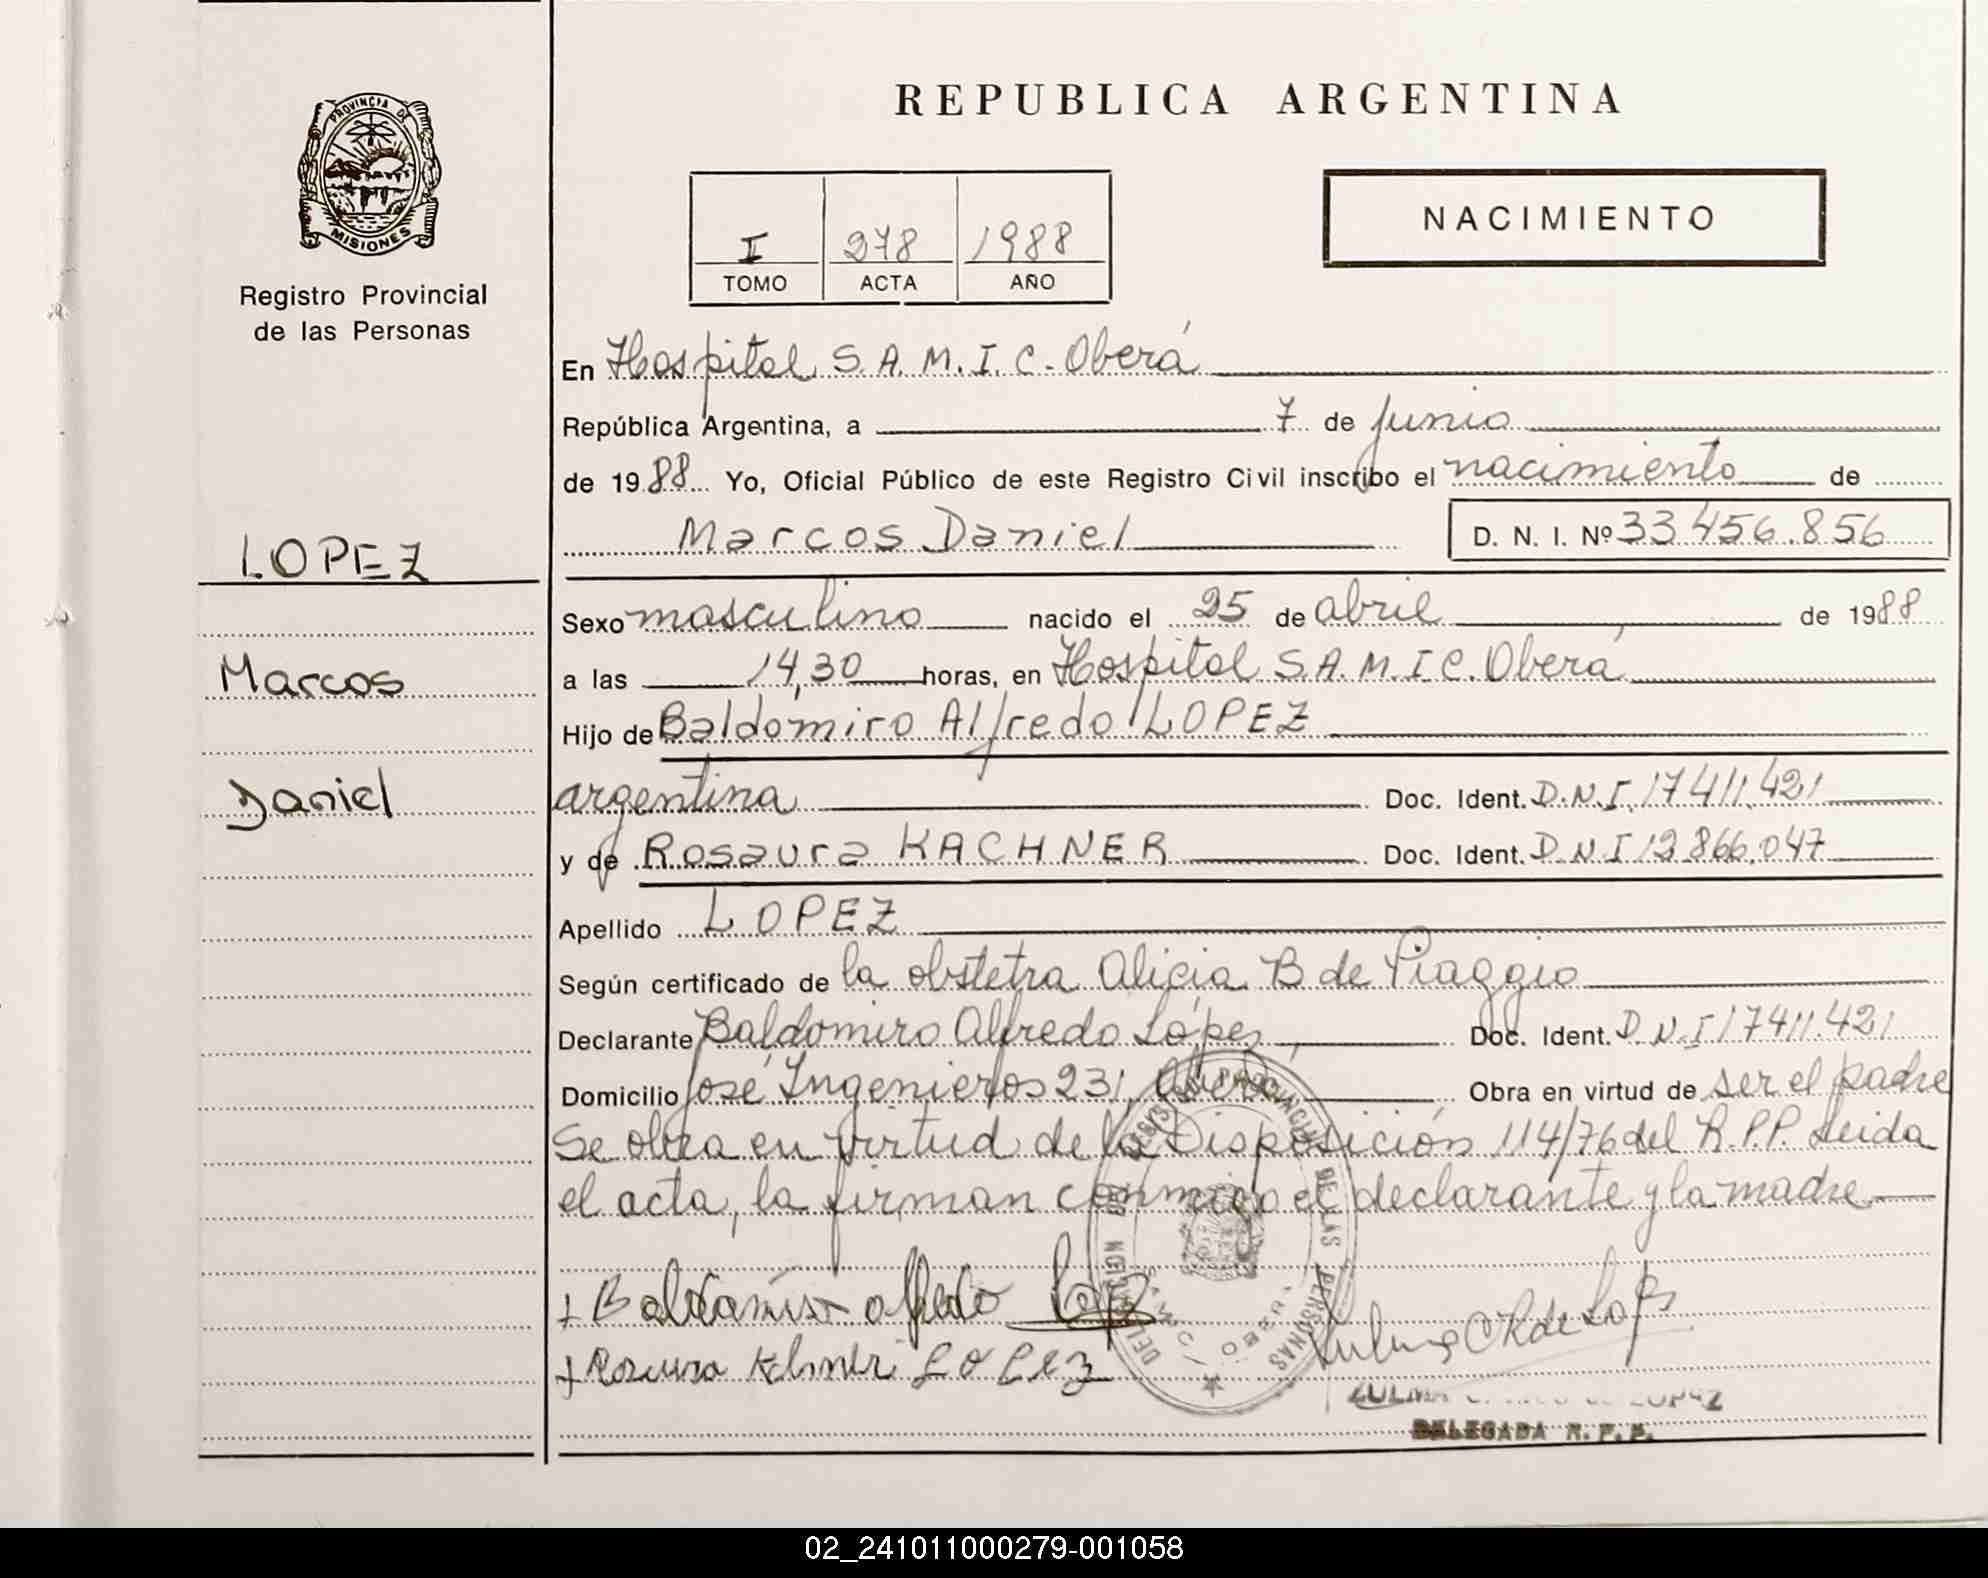 REPUBLICA ARGENTINA
PROVINCIA DE
MISIONES
Registro Provincial
de las Personas
I 278 1988
TOMO ACTA AÑO
NACIMIENTO
En Hospital S.A.M.I.C. Oberá
República Argentina, a 7 de junio
de 1988 Yo, Oficial Público de este Registro Civil inscribo el nacimiento de
Marcos Daniel D. N. I. Nº 33.456.856
LOPEZ
Marcos
Daniel
Sexo masculino nacido el 25 de abril de 1988
a las 14,30 horas, en Hospital S.A.M.I.C. Oberá
Hijo de Baldomiro Alfredo LOPEZ
argentina Doc. Ident. D.N.I. 17411.421
y de Rosaura KACHNER Doc. Ident. D.N.I 13.866.047
Apellido LOPEZ
Según certificado de la obstetra Alicia B de Piaggio
Declarante Baldomiro Alfredo López Doc. Ident. D.N.I 17411.421
Domicilio José Ingenieros 231, Oberá Obra en virtud de ser el padre
Se obra en virtud de la Disposición 114/76 del R.P.P. Leida
el acta, la firman conmigo el declarante y la madre
+ Baldomiro alfredo
+ Rosaura LOPEZ
DELEGADA R. P. P.
02_241011000279-001058